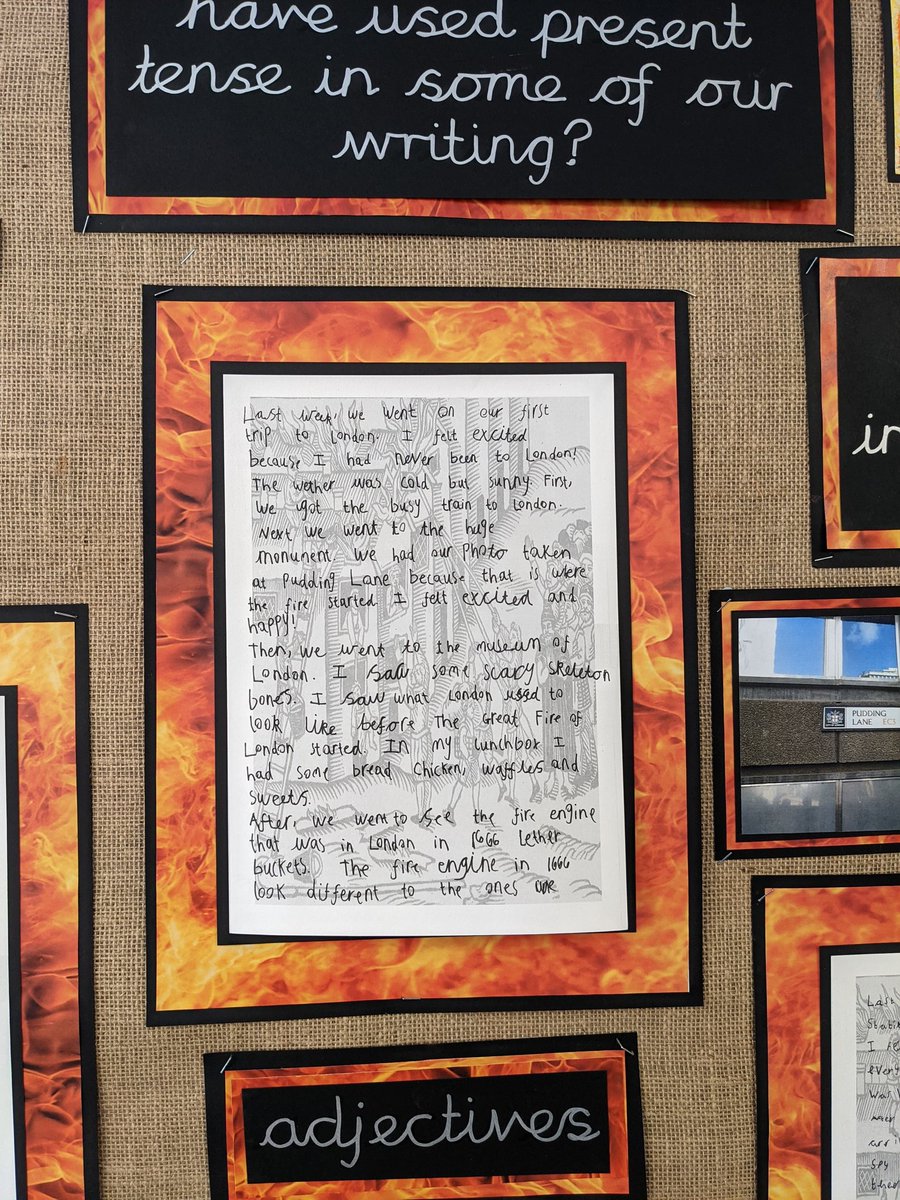 have used present
tense in some of our
writing?
in
Last week, we went on our first
trip to London. I felt excited
because I had never been to London!
The wether was cold but sunny. First,
we got the busy train to London.
Next we went to the huge
monument we had our photo taken
at Pudding Lane because that is where
the fire started. I felt excited and
happy!
Then, we went to the museum of
London. I saw some scary skeleton
bones. I saw what London used to
look like before The Great Fire of
London started. In my lunchbox I
had some bread chicken, waffles and
sweets.
After, we went to see the fire engine
that was in London in 1666 lether
buckets. The fire engine in 1666
look different to the ones
PUDDING
LANE EC3
adjectives
Last
I fe
ever
was
arri
spy